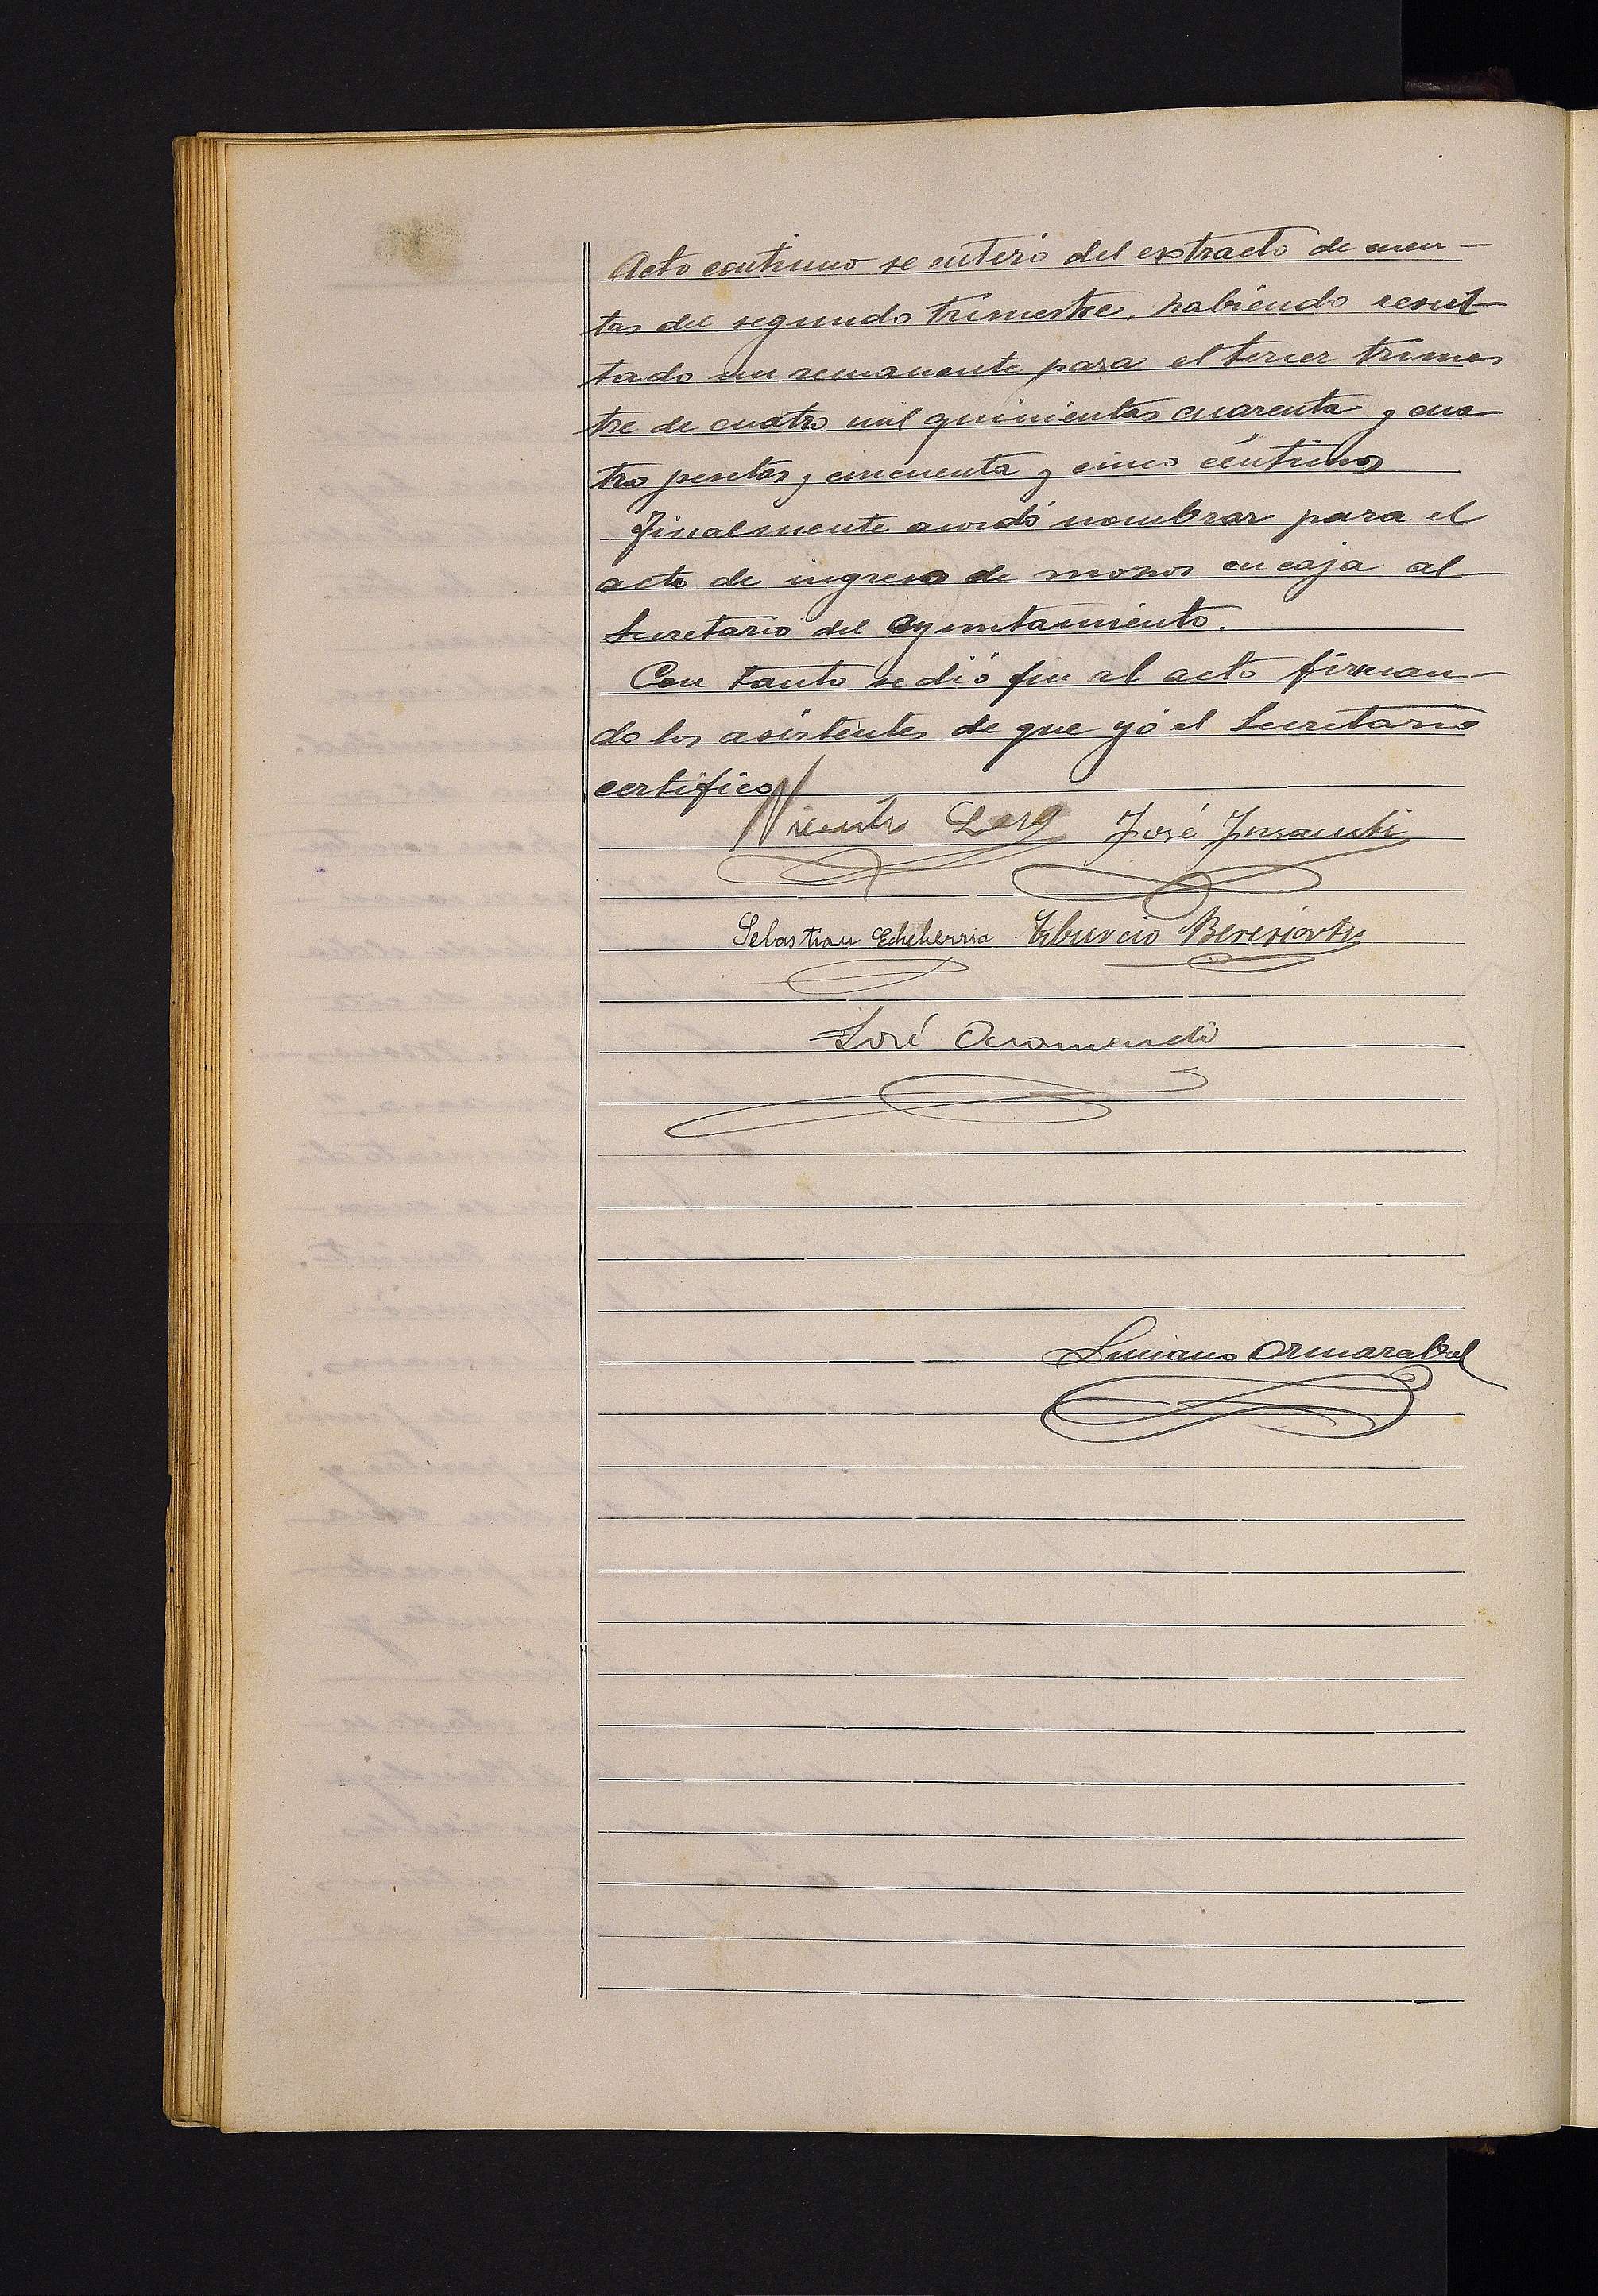 Acto continuo se enteró del extracto de cuen-
tas del segundo trimestre, habiendo resul-
tado un remanente para el tercer trimes
tre de cuatro mil quinientas cuarenta y cua
tro pesetas y cincuenta y cinco céntimos
Finalmente acordó nombrar para el
acto de ingreso de mozos en caja al
Secretario del Ayuntamiento.
Con tanto se dió fin al acto firman-
do los asistentes de que yó el Secretario
certifico
Vicente José Insausti
Sebastian Echeberria Tiburcio Beresiartu
José Oramendi
Luciano Ormazabal